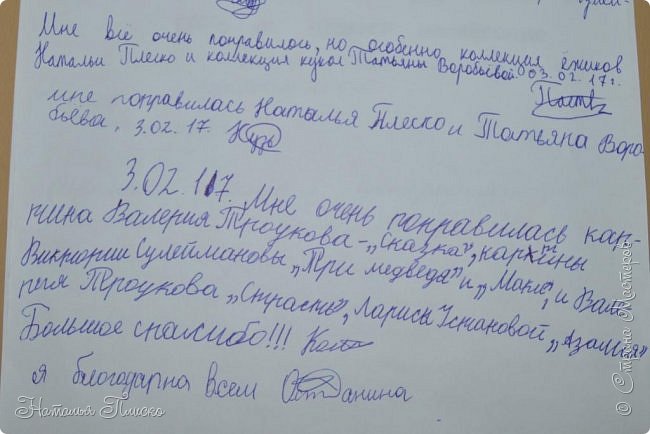 Мне всё очень понравилось, но особенно коллекция ёжиков
Натальи Плеско и коллекция кукол Татьяны Воробьёвой. 03.02.17г.
мне понравилась Наталья Плеско и Татьяна Воро-
бьёва. 3.02.17.
3.02.17. Мне очень понравилась кар-
тина Валерия Троукова - „Сказка", картины
Виктории Сулеймановы „Три медведя" и „Маки", и Вале-
рия Троукова „Страсть", Ларисы Установой „Азалия"
Большое спасибо!!!
я благодарна всем
Наталья Плиско
© Страна Мастеров